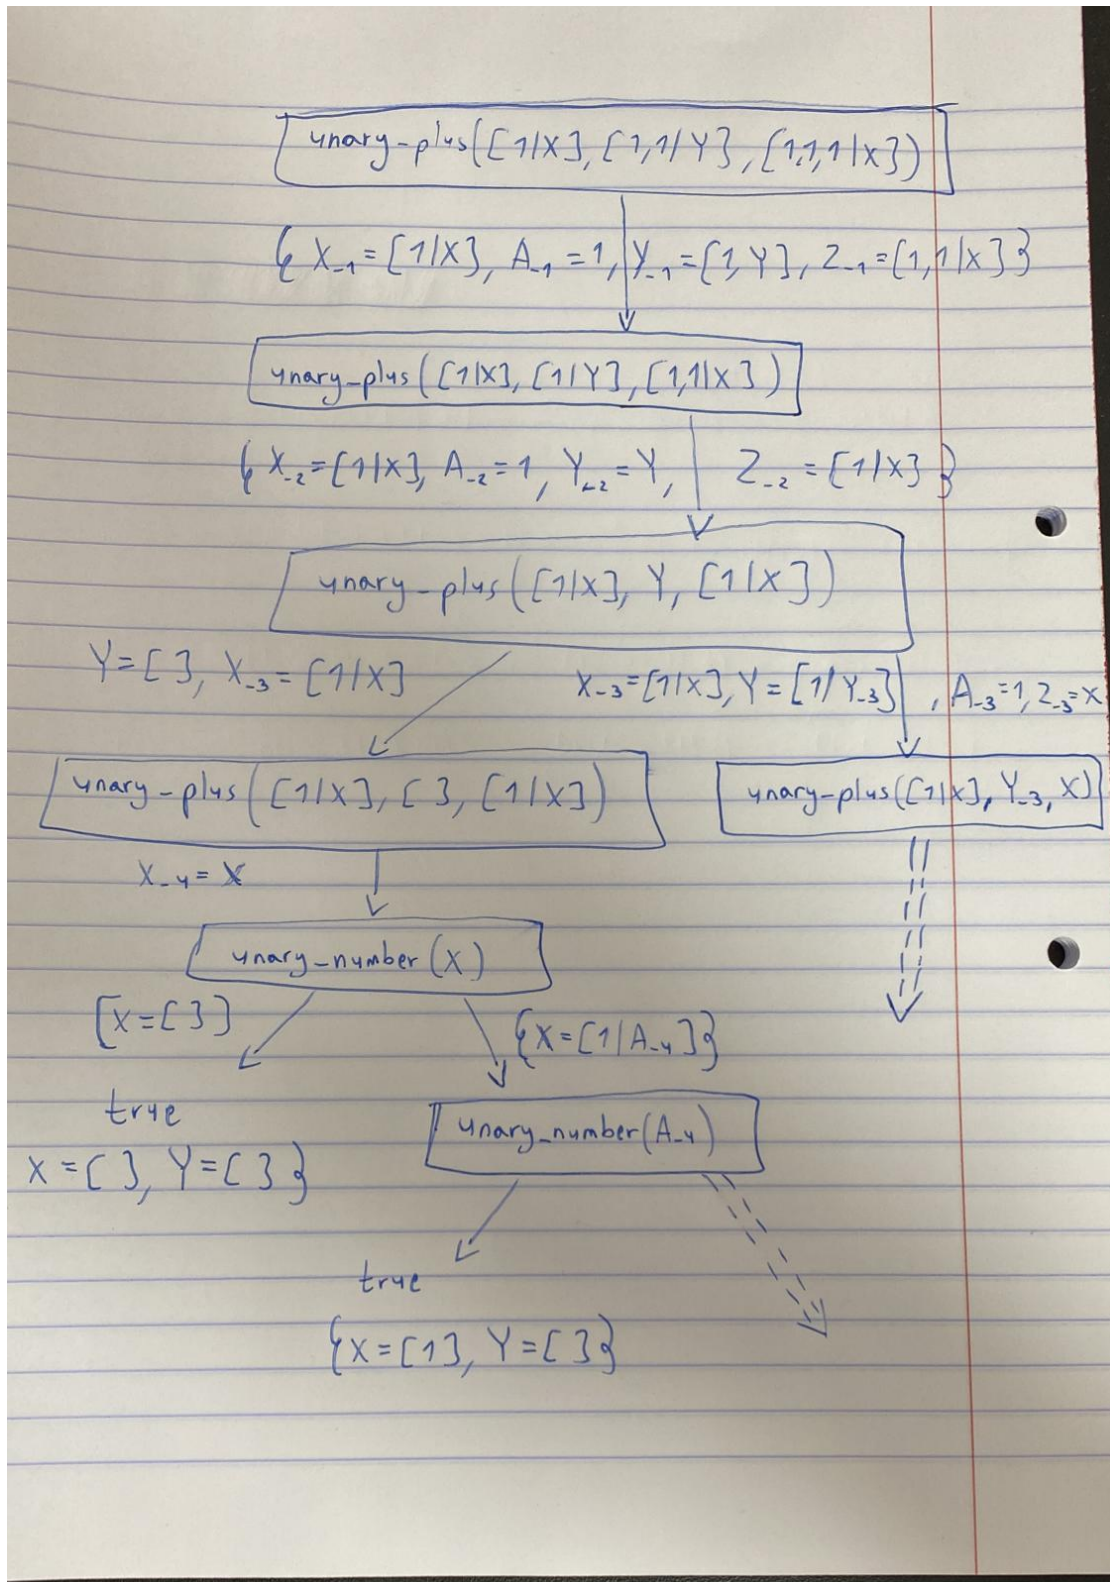 unary-plus([1|X], [1,1|Y], [1,1,1|X])
{ X_1=[1|X], A_1=1, Y_1=[1,Y], Z_1=[1,1|X] }
unary_plus([1|X], [1|Y], [1,1|X])
{ X_2=[1|X], A_2=1, Y_2=Y, Z_2=[1|X] }
unary_plus([1|X], Y, [1|X])
Y=[ ], X_3=[1|X]
X_3=[1|X], Y=[1|Y_3], A_3=1, Z_3=X
unary-plus([1|X], [ ], [1|X])
unary-plus([1|X], Y_3, X)
X_4=X
unary_number(X)
{X=[ ]}
{X=[1|A_4]}
true
unary_number(A_4)
X=[ ], Y=[ ]}
true
{X=[1], Y=[ ]}